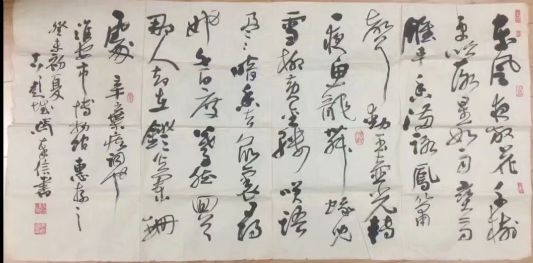 東風夜放花千樹
更吹落星如雨寶馬
雕車香滿路鳳簫
聲動玉壺光轉
一夜魚龍舞蛾兒
雪柳黃金縷笑語
盈盈暗香去眾裏尋
他千百度驀然回首
那人却在鐙火闌珊
處 辛棄疾詞也
淮安市博物館惠存之
癸未初夏
信書